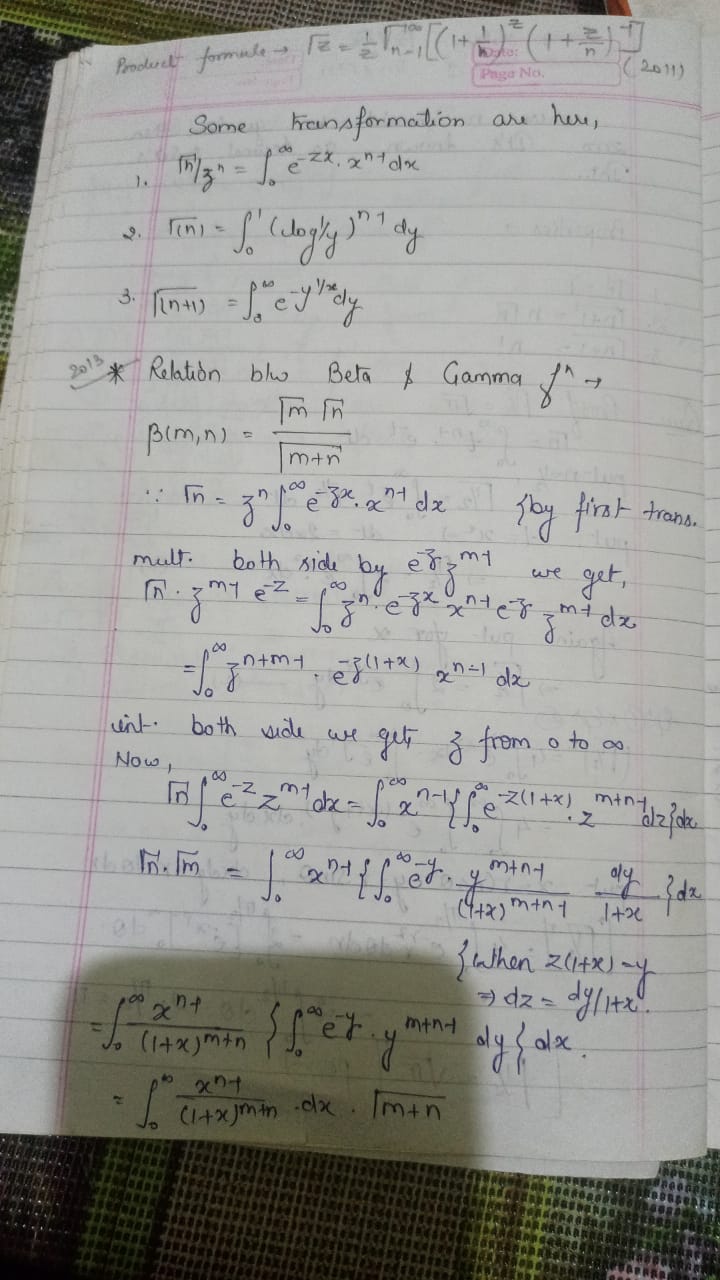 Product formula → Γz = 1/z Π∞n=1 [(1+1/n)^z (1+z/n)^-1]
Page No. (2011)
Some transformation are here,
1. Γn/z^n = ∫0^∞ e^-zx . x^n-1 dx
2. Γ(n) = ∫0^1 (log 1/y)^n-1 dy
3. Γ(n+1) = ∫0^∞ e^-y^1/n dy
2013 * Relation b/w Beta & Gamma f^n →
β(m,n) = Γm Γn / Γm+n
∵ Γn = z^n ∫0^∞ e^-zx . x^n-1 dx {by first trans.
mult. both side by e^-z z^m-1 we get,
Γn . z^m-1 e^-z = ∫0^∞ z^n . e^-zx x^n-1 e^-z z^m-1 dx
= ∫0^∞ z^n+m-1 . e^-z(1+x) x^n-1 dx
int. both side we get, z from 0 to ∞.
Now,
Γn ∫0^∞ e^-z z^m-1 dx = ∫0^∞ x^n-1 {∫0^∞ e^-z(1+x) . z^m+n-1 dz} dx
Γn . Γm = ∫0^∞ x^n-1 {∫0^∞ e^-y . y^m+n-1 / (1+x)^m+n-1 dy / 1+x } dx
{When z(1+x) = y
⇒ dz = dy/1+x.
= ∫0^∞ x^n-1 / (1+x)^m+n {∫0^∞ e^-y . y^m+n-1 dy} dx.
= ∫0^∞ x^n-1 / (1+x)^m+n . dx . Γm+n